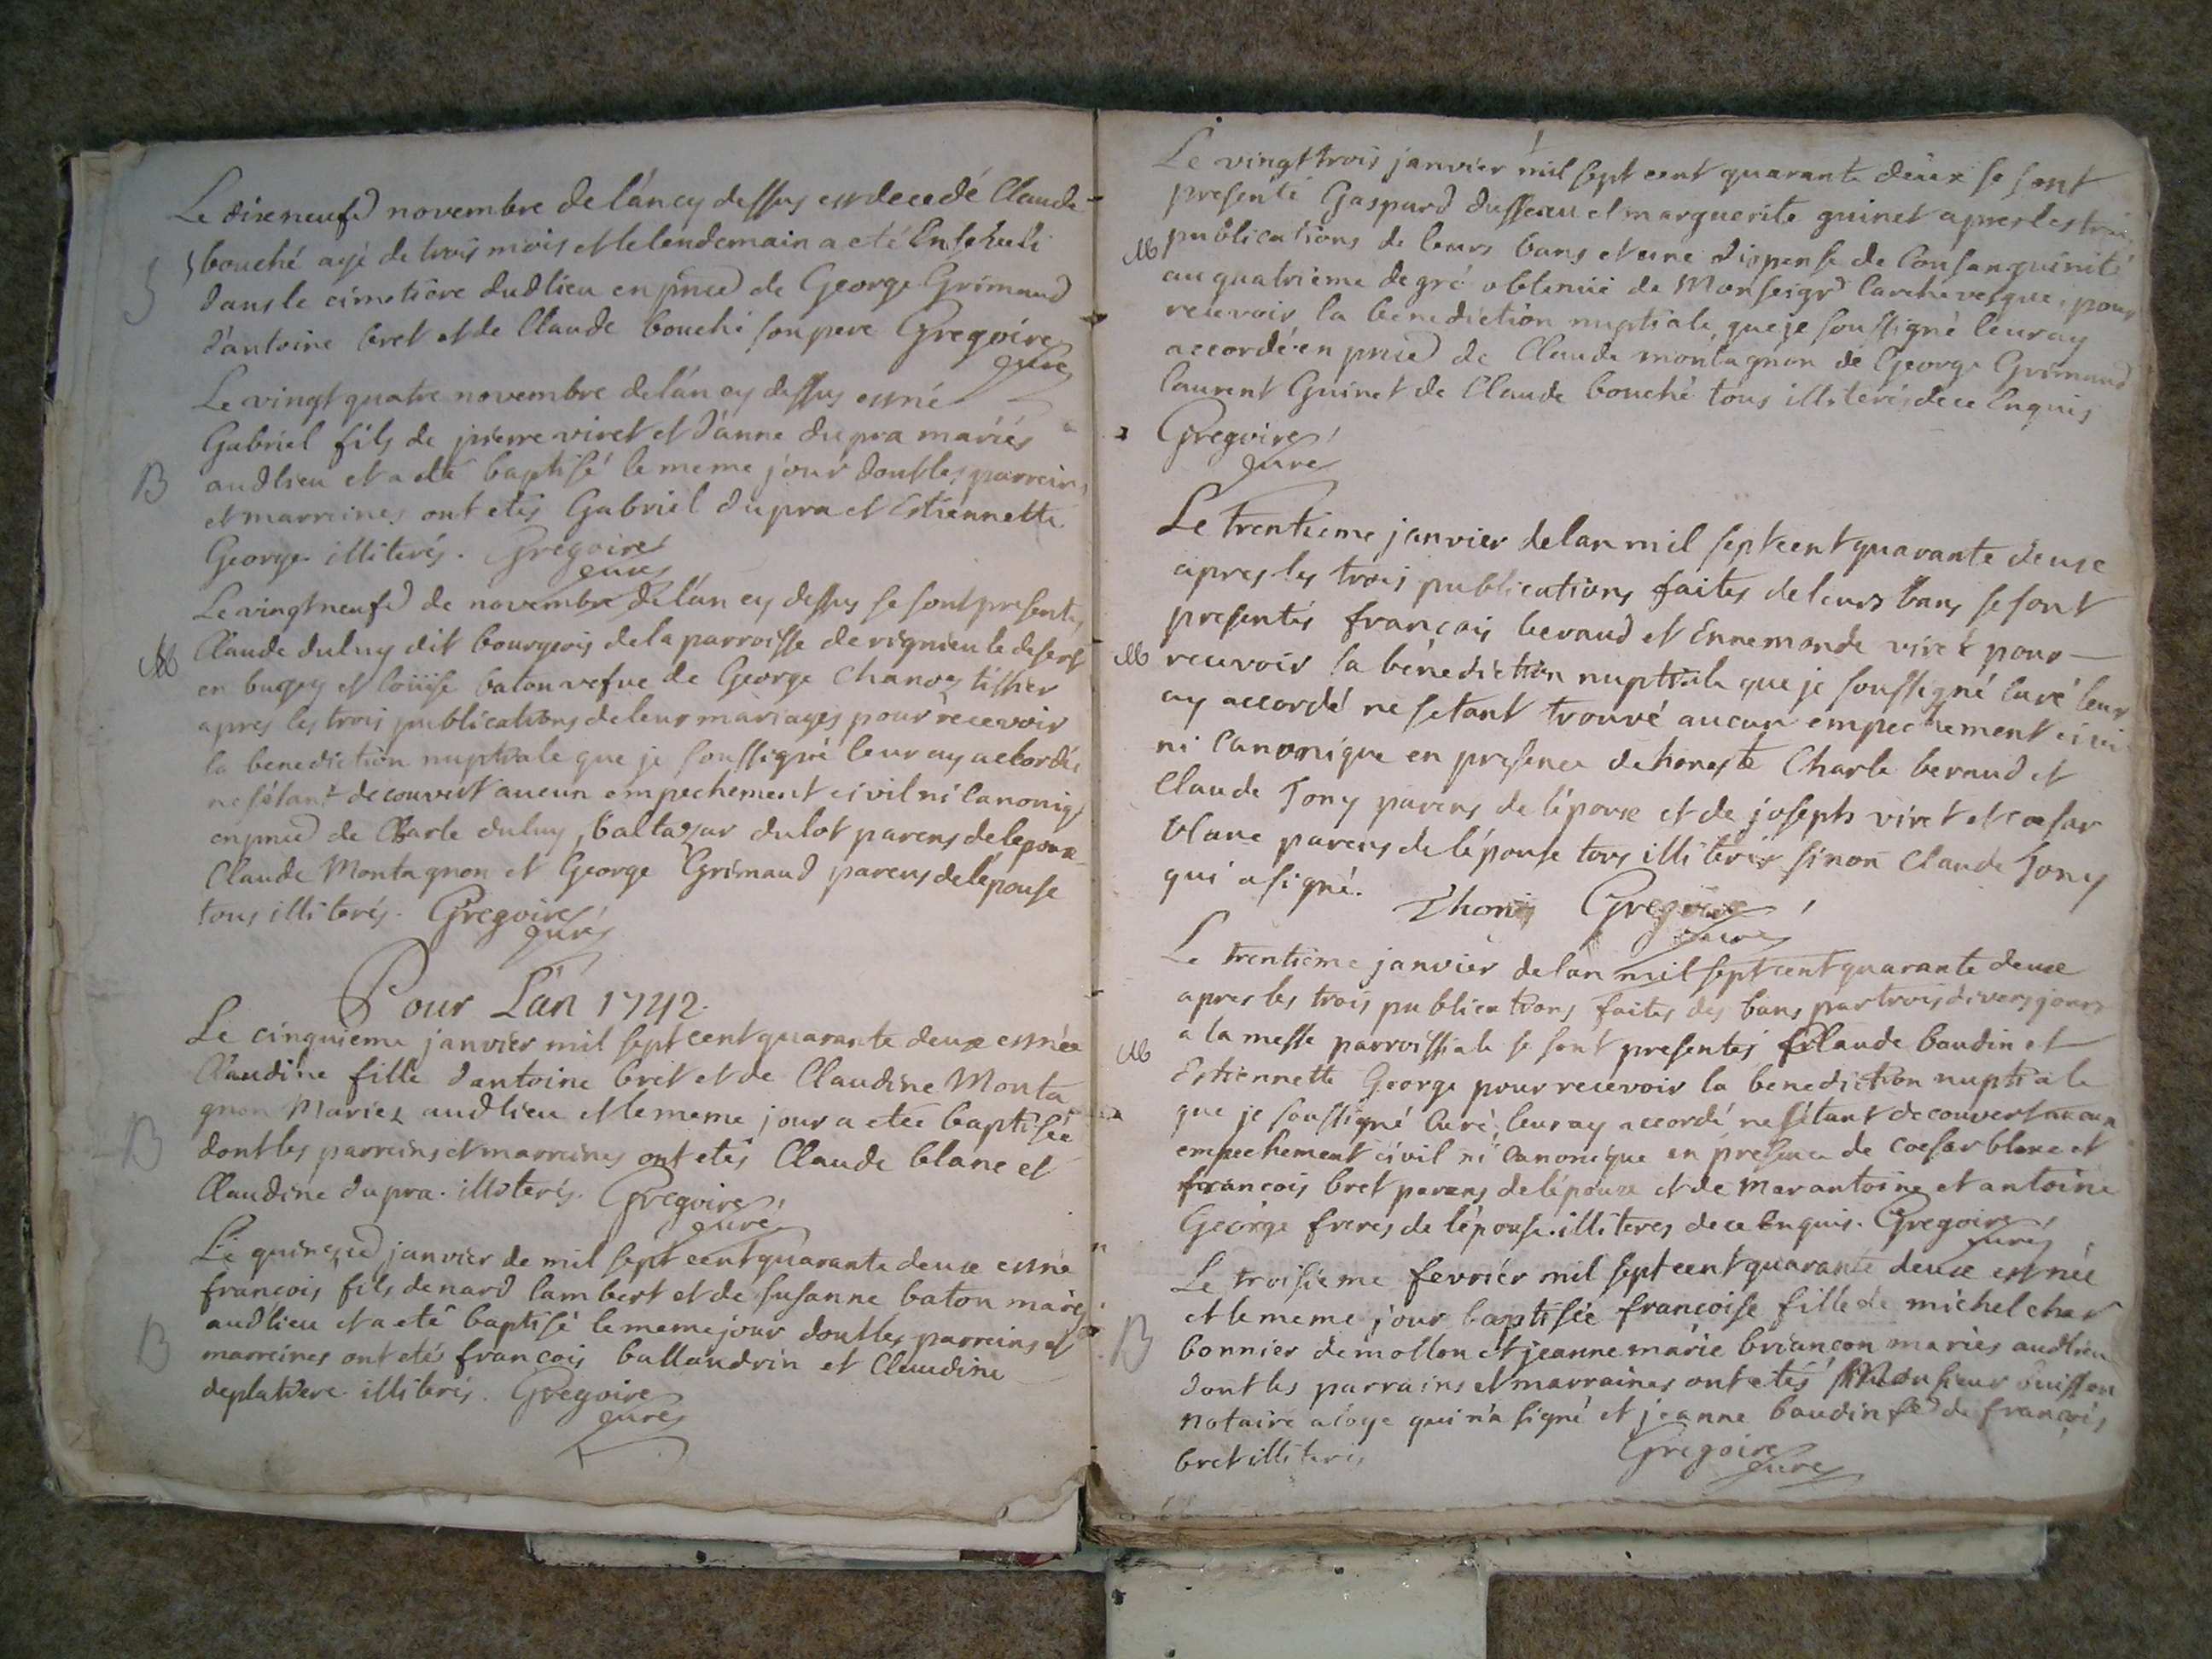 Le dixneufd novembre de l'an cy dessus est decedé Claude
bouché agé de trois mois et le lendemain a eté Enseveli
S
dans le cimetiere dudlieu en pnced de George Grimaud
d'antoine bret et de Claude bouché son pere Gregoire
curé
Le vingt quatre novembre de l'an cy dessus est né
Gabriel fils de pierre viret et d'anne dupra mariés
B
audlieu et a eté baptisé le meme jour dont les parreins
et marreines ont etés Gabriel dupra et Estiennette
George illiterés. Gregoire
curé
Le vingt neufd de novembre de l'an cy dessus se sont presentés
M
Claude duluy dit bourgeois de la parroisse de rignieu le desert
en bugey et loüise baton vefue de George Chanoz tissier
apres les trois publications de leur mariages pour recevoir
la benediction nuptiale que je soussigné leur ay accordée
ne s'étant decouvert aucun empechement civil ni Canoniq
en pnced de Charle duluy, baltazar dulot parens de lepoux
Claude Montagnon et George Grimaud parens de l'épouse
tous illiterés. Gregoire
curé
Pour L'an 1742.
Le cinquieme janvier mil sept cent quarante deux est née
Claudine fille d'antoine bret et de Claudine Monta
gnon Mariez audlieu et le meme jour a eteé baptisée
B
dont les parreins et marreines ont etés Claude blanc et
Claudine dupra. illiterés. Gregoire
curé
Le quinzed janvier de mil sept cent quarante deux est né
francois fils denard lambert et de susanne baton mariés
B
audlieu et a eté baptisé le meme jour dont les parreins et
marreines ont etés francois ballandrin et Claudine
deplatiere illiterés. Gregoire
curé
Le vingt trois janvier mil sept cent quarante deux se sont
presenté Gaspard dusseau et marguerite guinet apres les trois
M
publications de leurs bans et une dispense de Consanguinité
au quatrieme degré obtenüe de Monseigrd l'archevesque, pour
recevoir la benediction nuptiale, que je soussigné leur ay
accordé en pnced de Claude montagnon de George Grimaud
laurent Guinet de Claude bouché tous illiterés de ce Enquis
Gregoire
curé
Le trentieme janvier de lan mil sept cent quarante deux
apres les trois publications faites de leurs bans se sont
presentés françois beraud et Ennemonde viret pour
M
recevoir la bénediction nuptiale que je soussigné curé leur
ay accordé ne setant trouvé aucun empechement civil
ni Canonique en presence de honeste Charle beraud et
Claude Tony parens de l'époux et de joseph viret et coesar
blanc parens de l'épouse tous illiterés sinon Claude Tony
qui a signé. Thoni Gregoire
curé
Le trentieme janvier de lan mil sept cent quarante deux
apres les trois publications faites des bans par trois divers jours
a la messe parroissiale se sont presentés Claude baudin et
M
Estiennette George pour recevoir la benediction nuptiale
que je soussigné Curé, leur ay accordé ne s'étant decouvert aucun
empechement civil ni Canonique en presence de coesar blanc et
francois bret parens de l'époux et de marantoine et antoine
George freres de l'épouse. illiteres de ce Enquis. Gregoire
curé
Le troisieme fevrier mil sept cent quarante deux est née
et le meme jour baptisée françoise fille de michel char
B
bonnier de mollon et jeanne marie briançon mariés audlieu
dont les parrains et marraines ont etés Monsieur buisson
notaire a loye qui n'a signé et jeanne baudin fe de françois
bret illiterés
Gregoire
curé